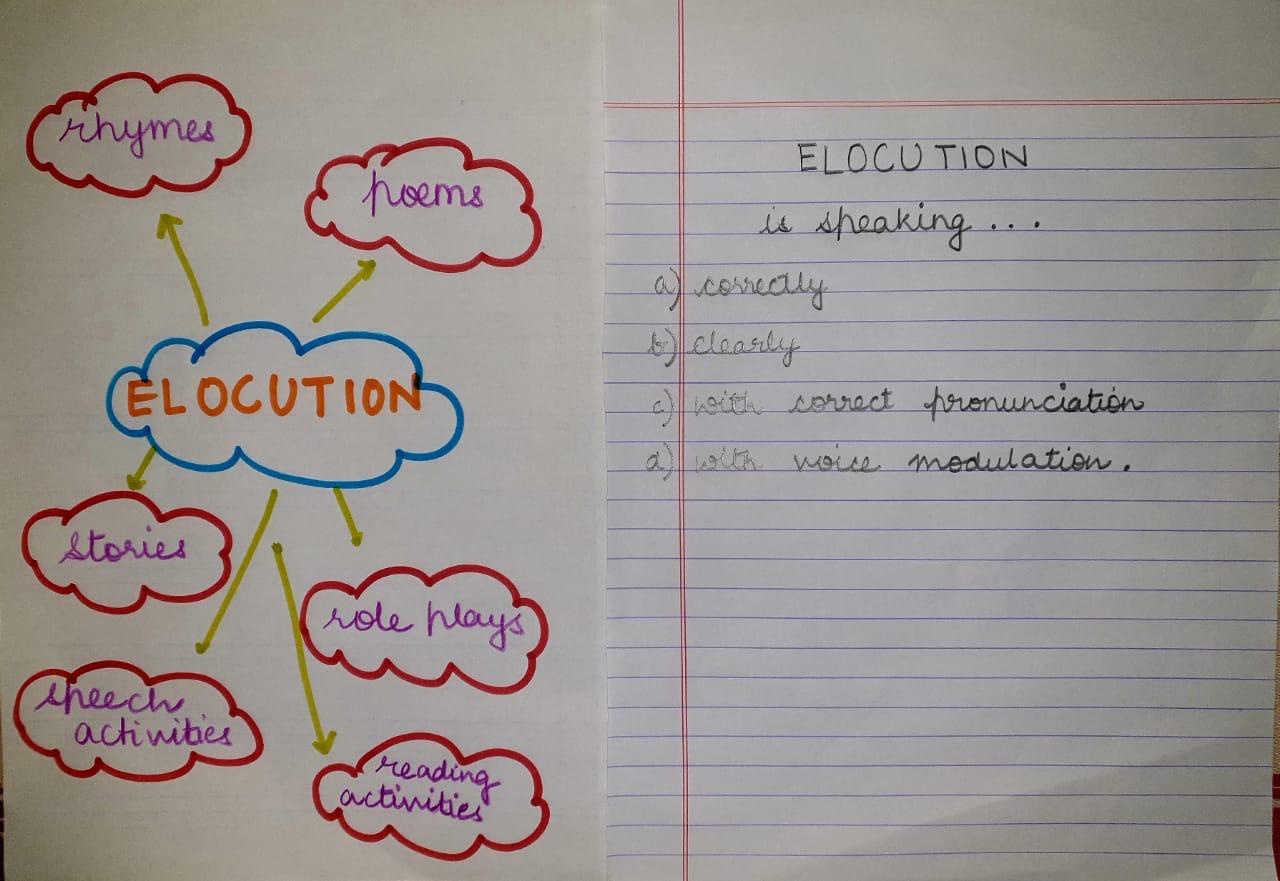 rhymes
poems
ELOCUTION
stories
role plays
speech
activities
reading
activities
ELOCUTION
is speaking...
a) correctly
b) clearly
c) with correct pronunciation
d) with voice modulation.